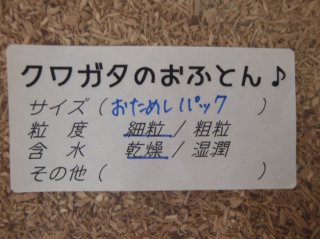 クワガタのおふとん♪
サイズ（おためしパック　　）
粒　度　　細粒 / 粗粒
含　水　　乾燥 / 湿潤
その他（　　　　　　　　　）